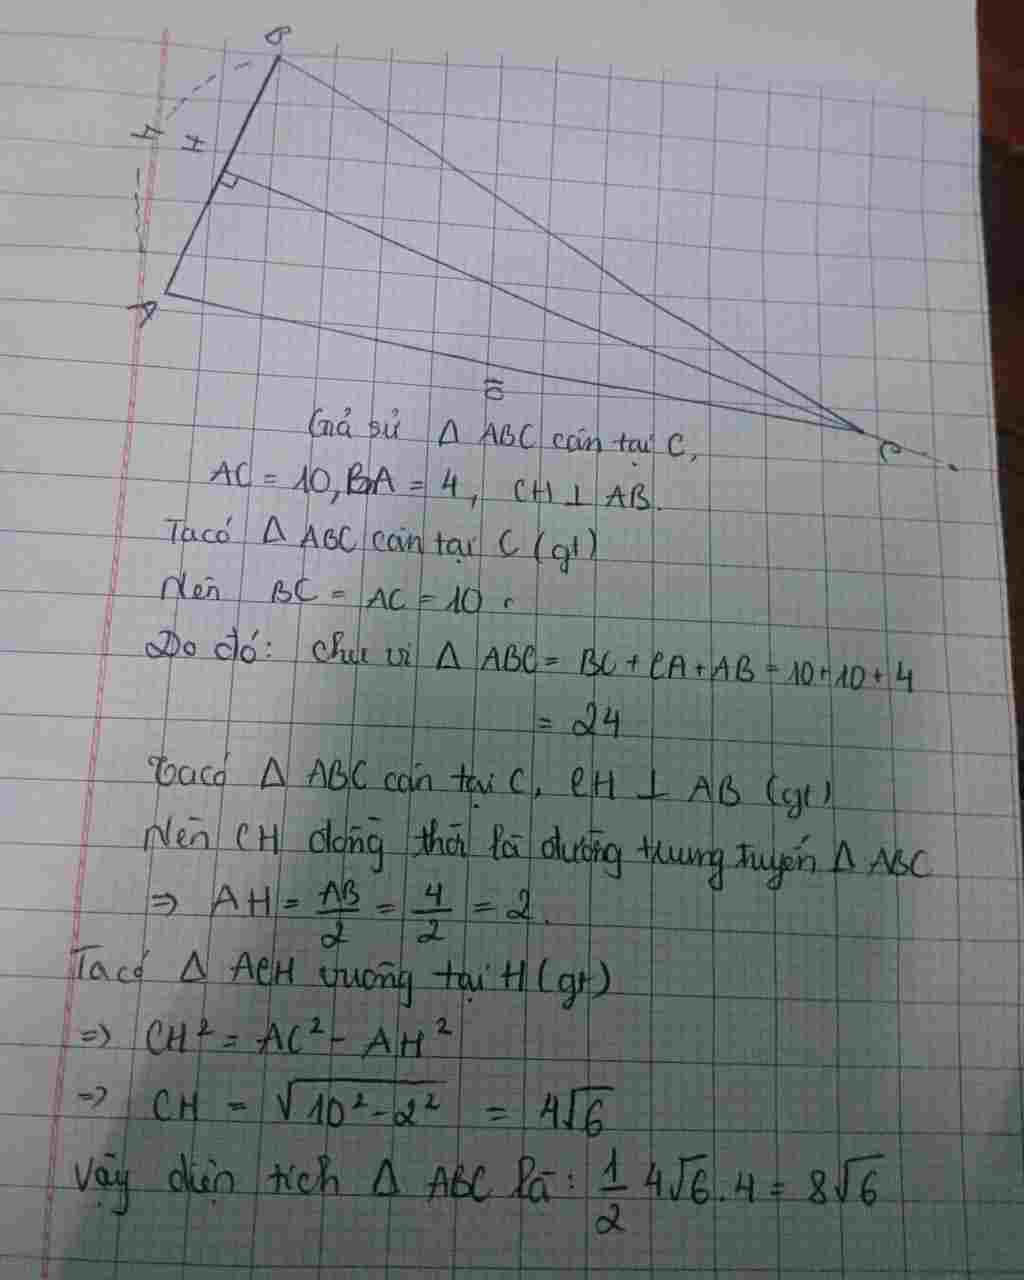 B
4
H
A
10
C
Giả sử Δ ABC cân tại C,
AC = 10, BA = 4, CH ⊥ AB.
Ta có Δ ABC cân tại C (gt)
Nên BC = AC = 10.
Do đó: chu vi Δ ABC = BC + CA + AB = 10 + 10 + 4
= 24
Ta có Δ ABC cân tại C, CH ⊥ AB (gt)
Nên CH đồng thời là đường trung tuyến Δ ABC
⇒ AH = AB/2 = 4/2 = 2.
Ta có Δ ACH vuông tại H (gt)
⇒ CH² = AC² - AH²
⇒ CH = √(10² - 2²) = 4√6
Vậy diện tích Δ ABC là: 1/2 4√6 . 4 = 8√6